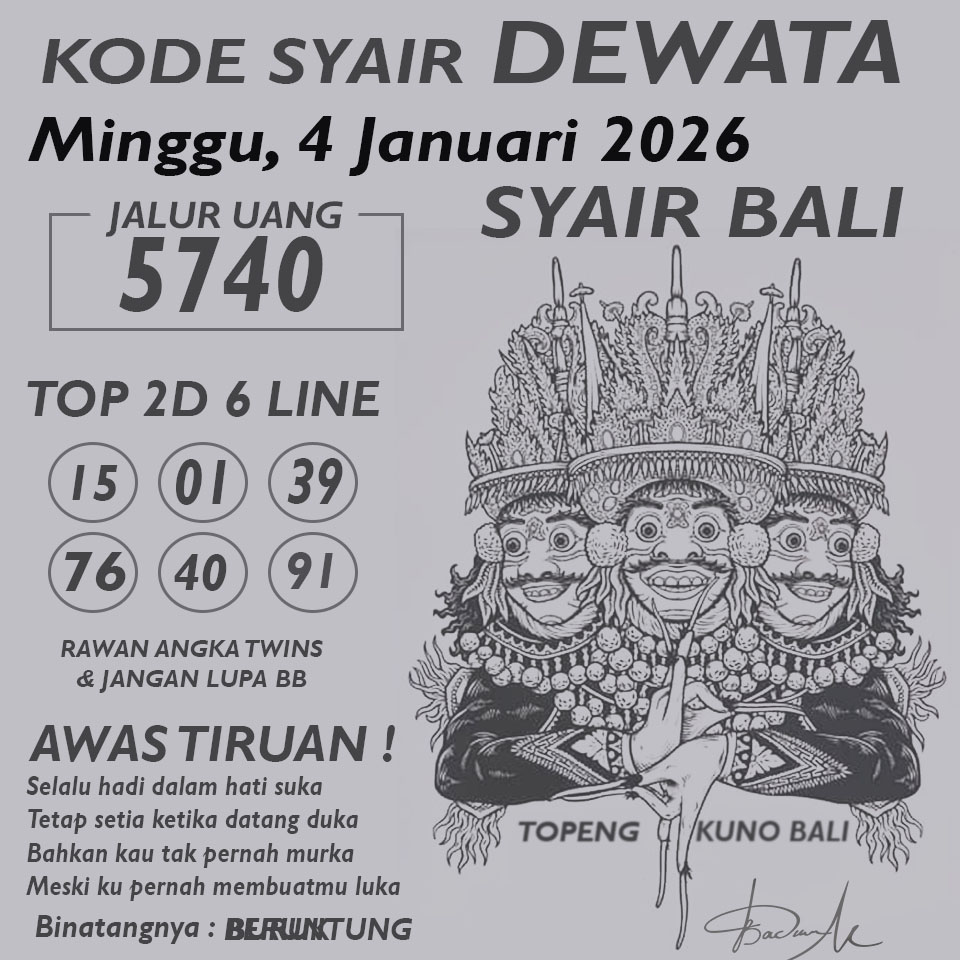 KODE SYAIR DEWATA
Minggu, 4 Januari 2026
SYAIR BALI
JALUR UANG
5740
TOP 2D 6 LINE
15 01 39
76 40 91
RAWAN ANGKA TWINS
& JANGAN LUPA BB
AWAS TIRUAN !
Selalu hadi dalam hati suka
Tetap setia ketika datang duka
Bahkan kau tak pernah murka
Meski ku pernah membuatmu luka
Binatangnya :
TOPENG KUNO BALI